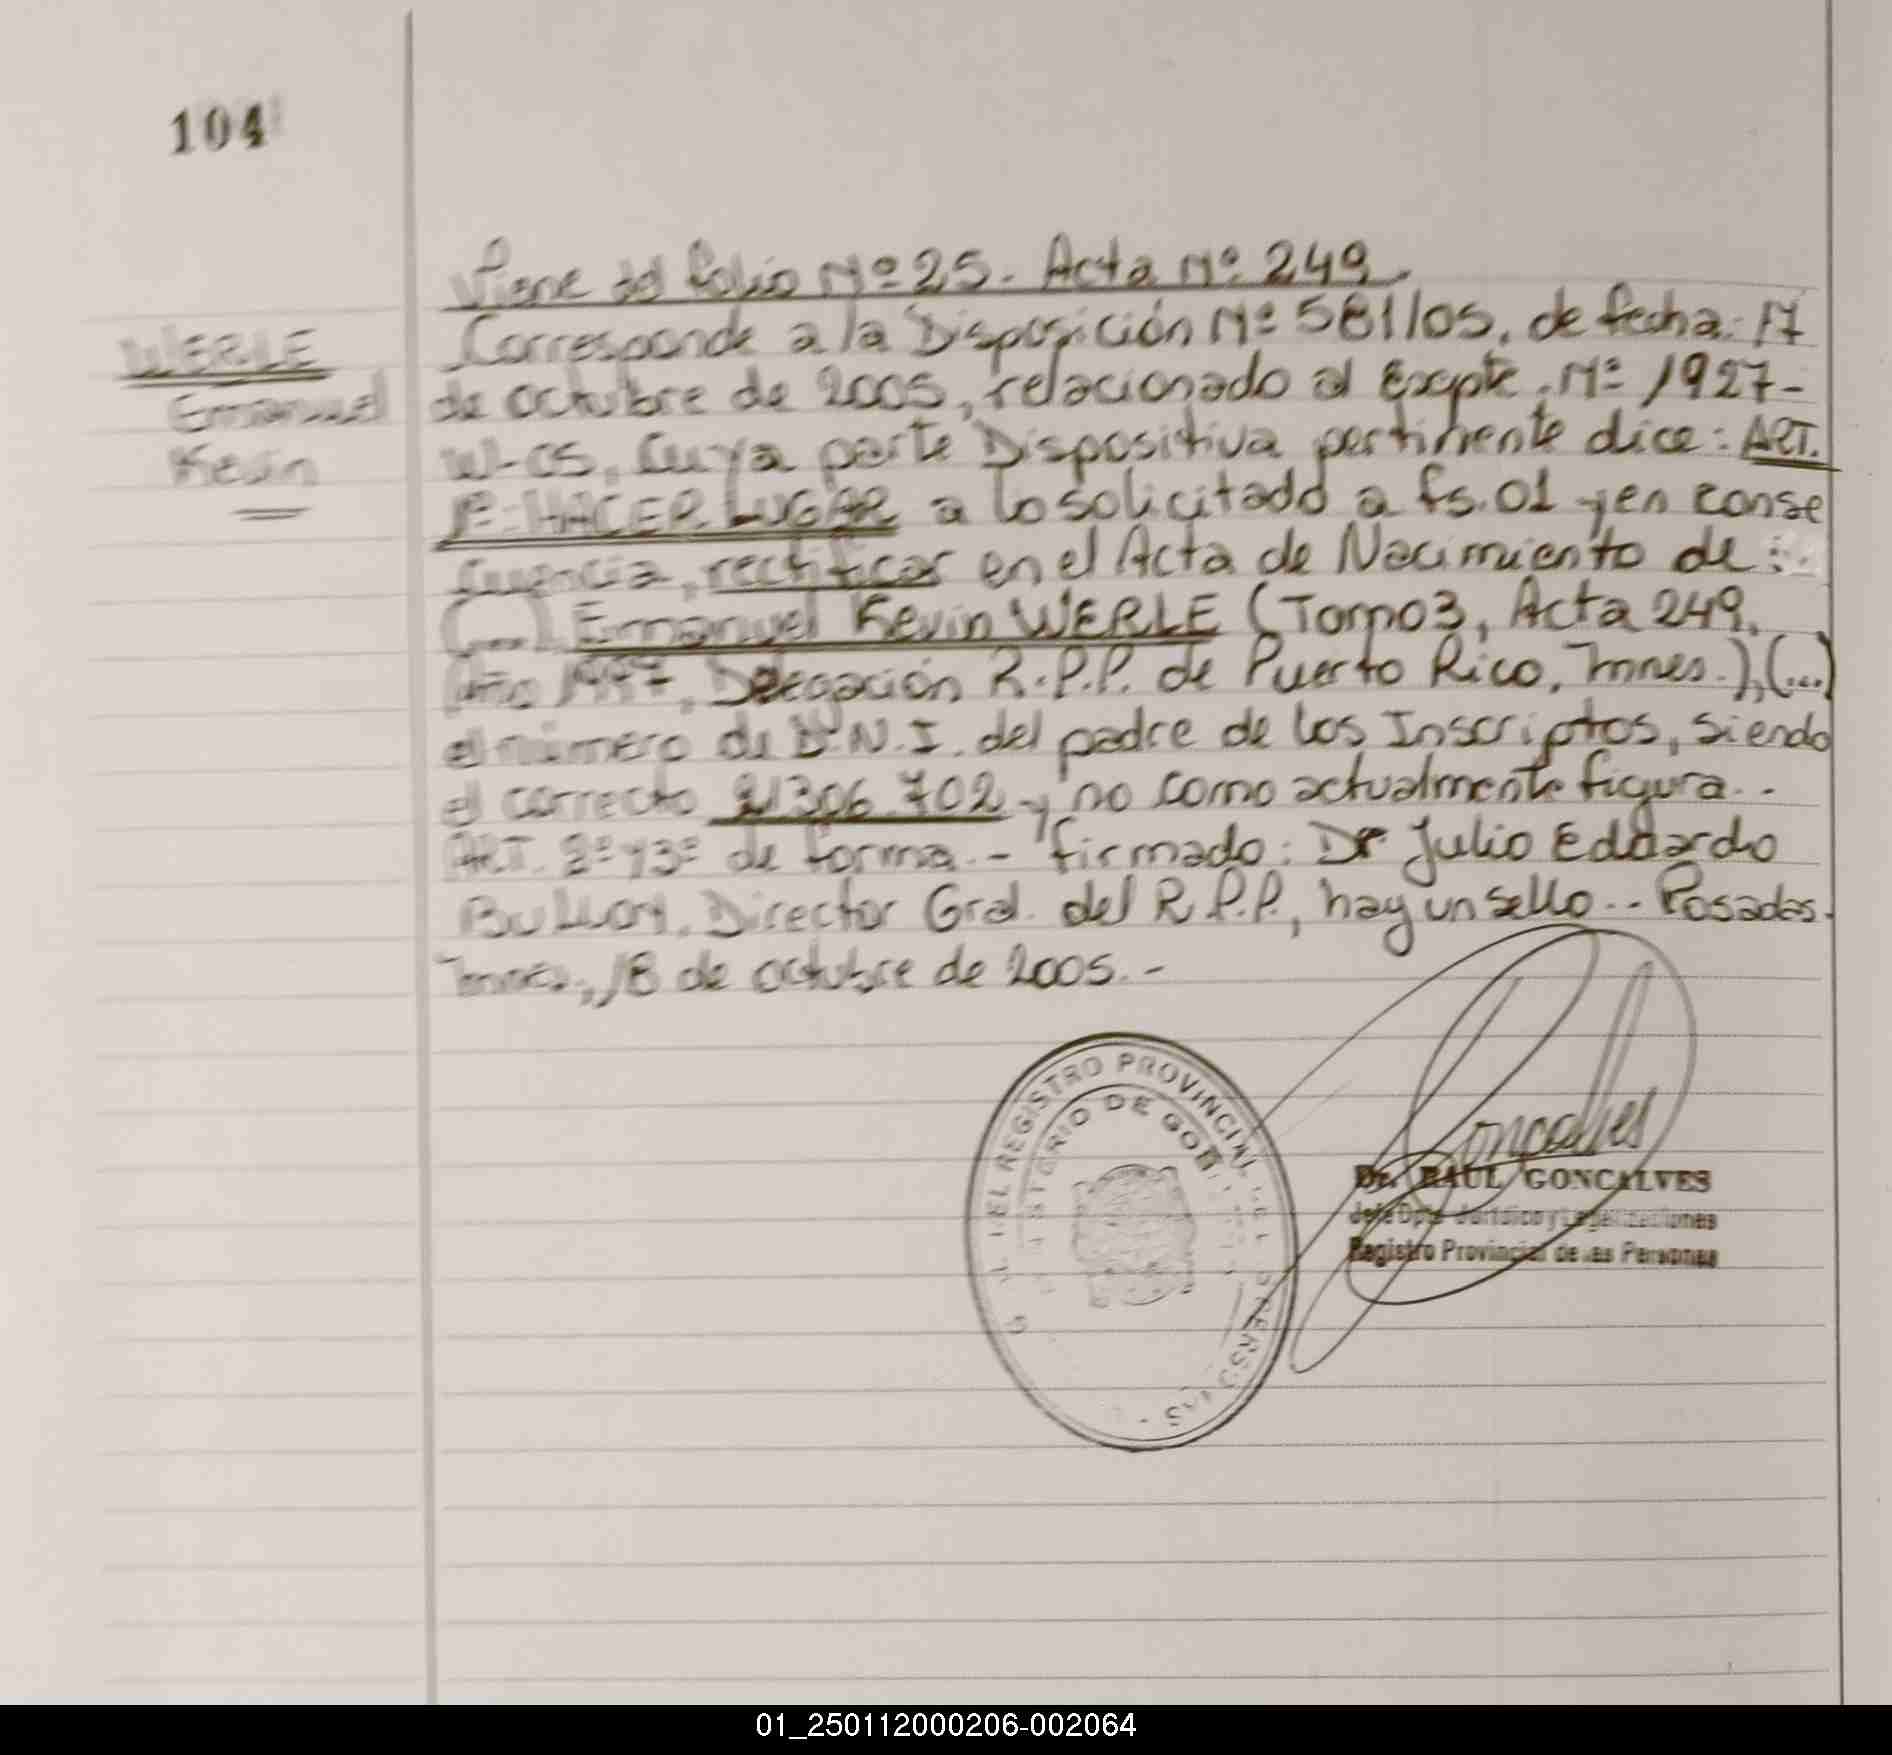 104
Viene del folio Nº 25. Acta Nº 249.
WERLE
Emanuel
Kevin
Corresponde a la Disposición Nº 581/05, de fecha: 17
de octubre de 2005, relacionado al Expte. Nº 1927-
W-05, Cuya parte Dispositiva pertinente dice: ART.
1º: HACER LUGAR a lo solicitado a fs. 01 y en conse
cuencia, rectificar en el Acta de Nacimiento de :
(...), Emanuel Kevin WERLE (Tomo 3, Acta 249,
Año 1997, Delegación R.P.P. de Puerto Rico, Mnes.), (...)
el número de D.N.I. del padre de los Inscriptos, siendo
el correcto 21.306.702 y no como actualmente figura.-
ART. 2º y 3º de forma.- firmado: Dr Julio Eduardo
Director Gral. del R.P.P., hay un sello.- Posadas.
Mnes., 18 de octubre de 2005.-
REGISTRO PROVINCIAL DE
PERSONAS
MINISTERIO DE GOB
Goncalves
Dr. RAUL GONCALVES
Jefe Dpto Jurídico y Legalizaciones
Registro Provincial de las Personas
01_250112000206-002064